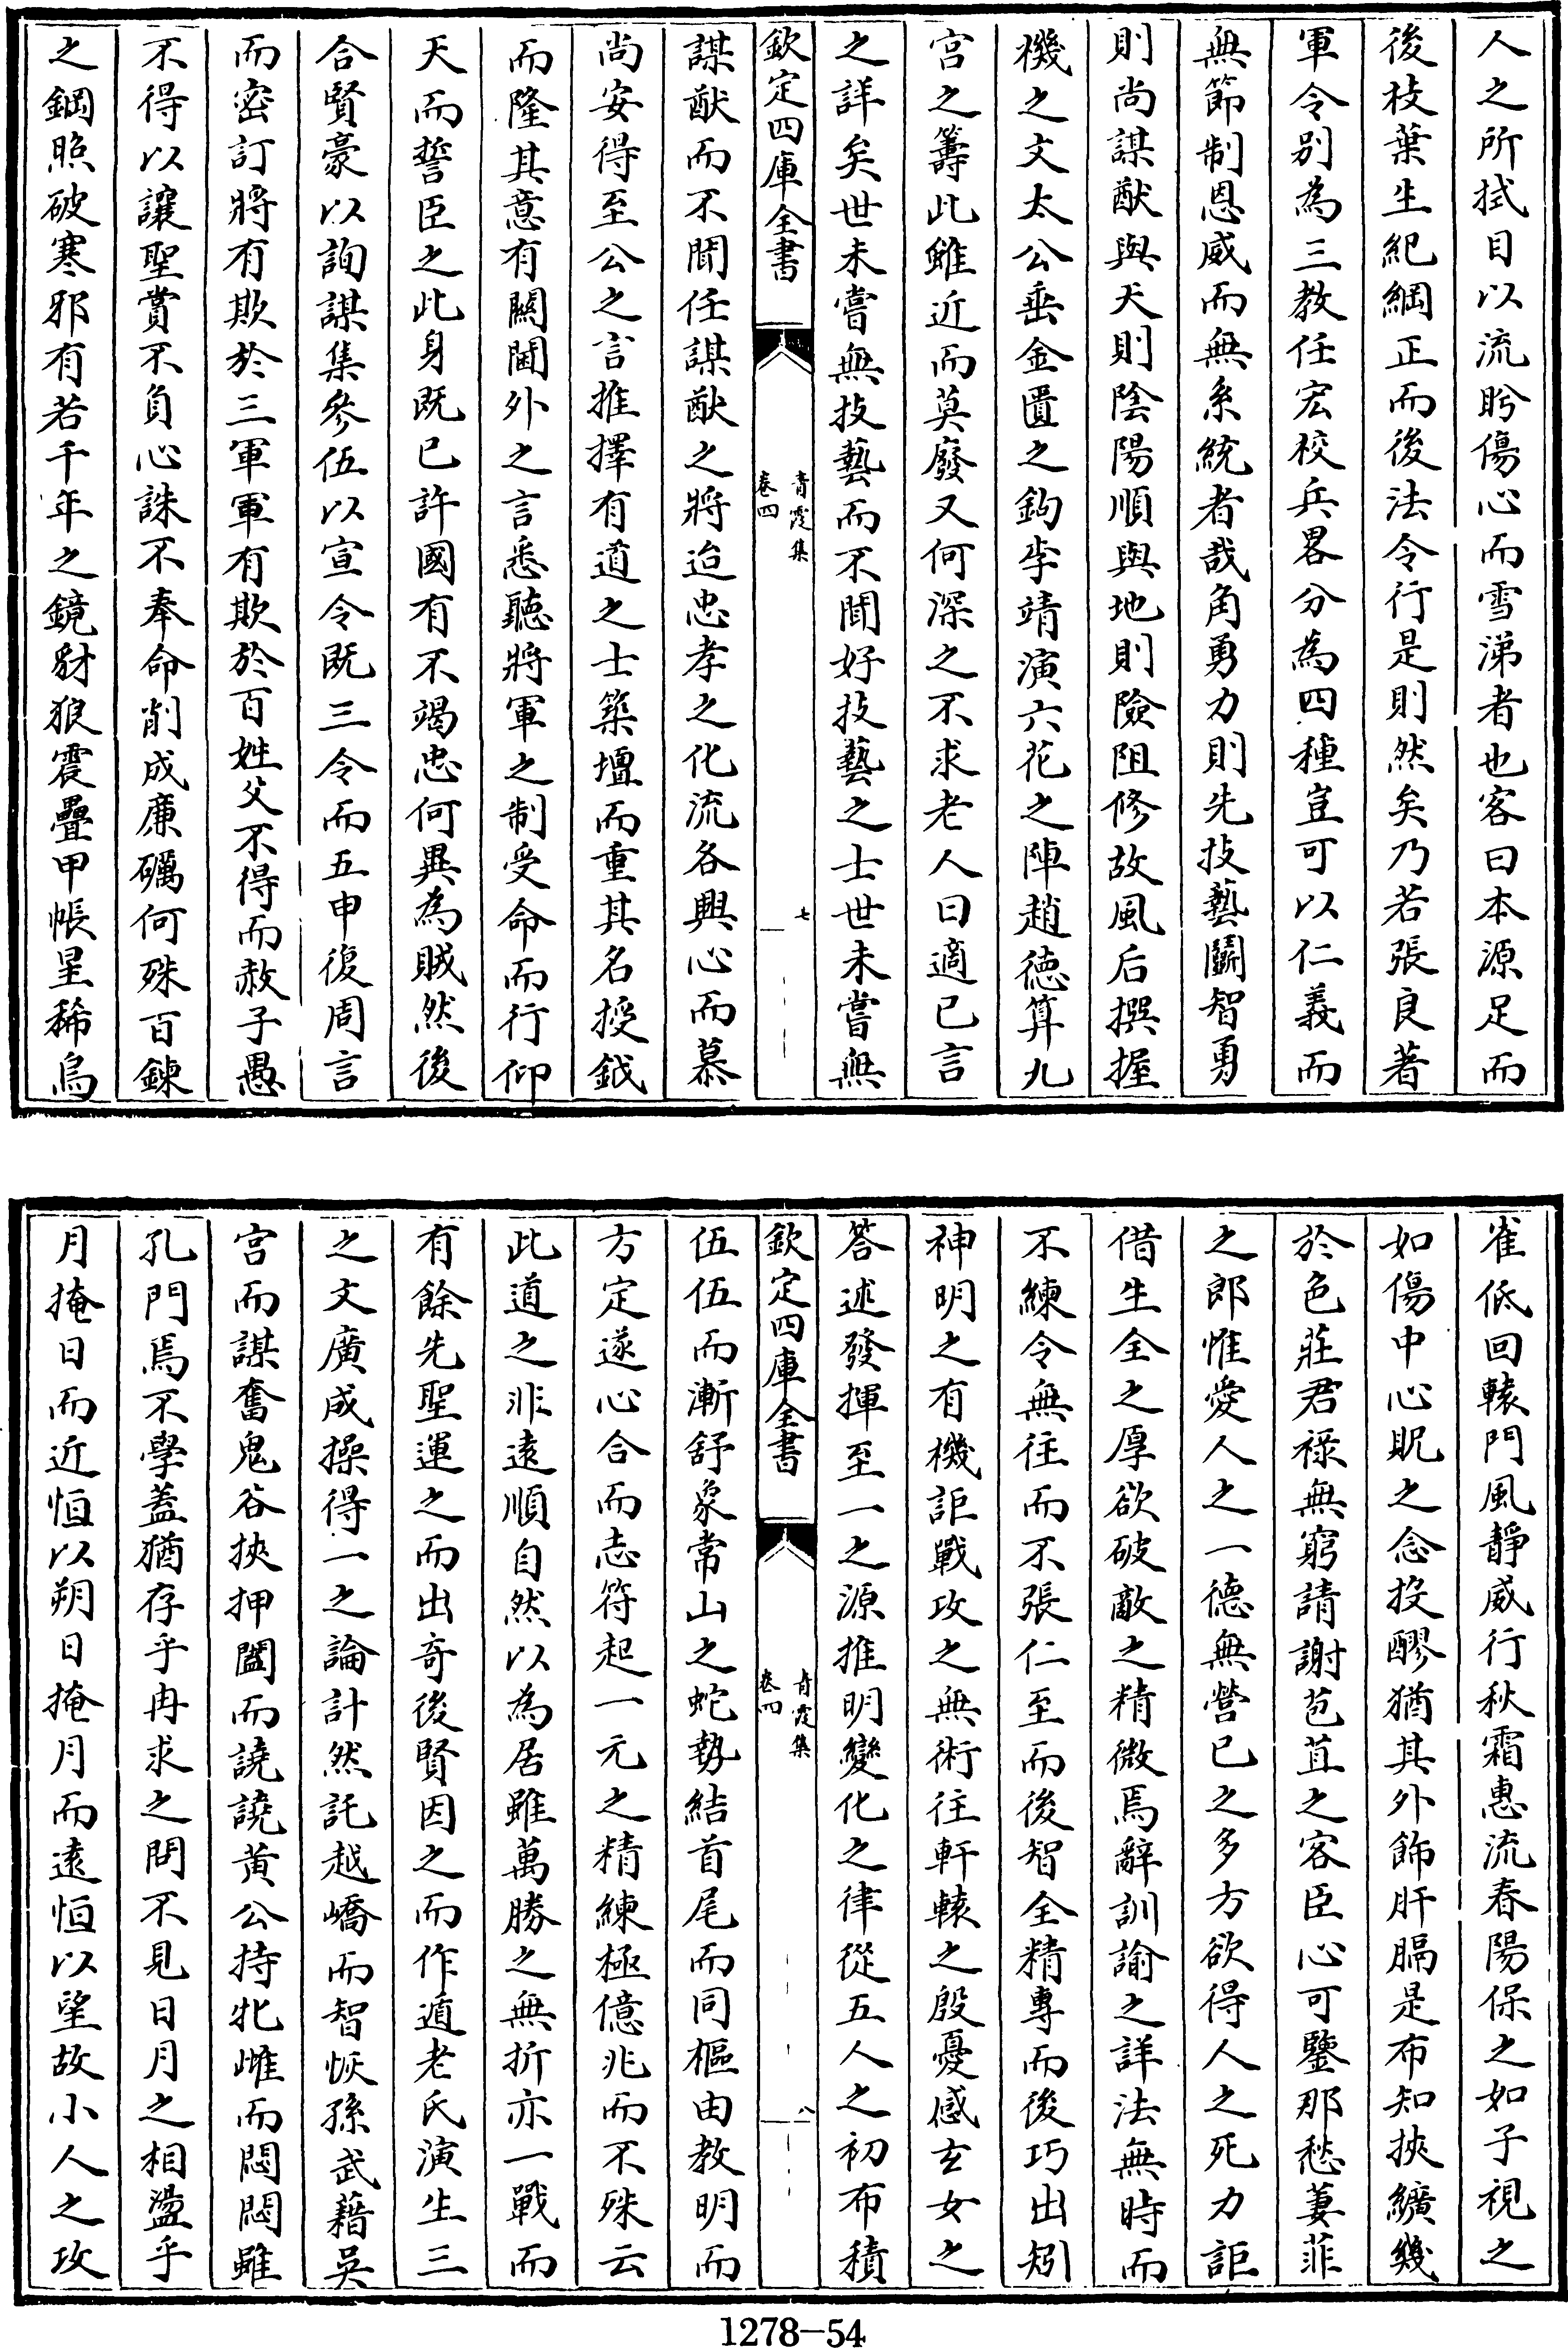 人之所拭目以流盻傷心而雪涕者也客曰本源足而
後枝葉生紀綱正而後法令行是則然矣乃若張良著
軍令別為三教任宏校兵畧分為四種豈可以仁義而
無節制恩威而無系統者哉角勇力則先技藝鬭智勇
則尚謀猷與天則陰陽順與地則險阻修故風后撰握
機之文太公垂金匱之鈎李靖演六花之陣趙德算九
宫之籌此雖近而莫廢又何深之不求老人曰適已言
之詳矣世未嘗無技藝而不聞好技藝之士世未嘗無
欽定四庫全書
青霞集
卷四
七
謀猷而不聞任謀猷之將迨忠孝之化流各興心而慕
尚安得至公之言推擇有道之士築壇而重其名授鉞
而隆其意有闗閫外之言悉聽將軍之制受命而行仰
天而誓臣之此身既已許國有不竭忠何異為賊然後
合賢豪以詢謀集參伍以宣令既三令而五申復周言
而密訂將有欺於三軍軍有欺於百姓父不得而赦子愚
不得以讓聖賞不負心誅不奉命削成廉礪何殊百鍊
之鋼照破寒邪有若千年之鏡豺狼震疊甲帳星稀烏
雀低回轅門風靜威行秋霜惠流春陽保之如子視之
如傷中心貺之念投醪猶其外飾肝膈是布知挾纊幾
於色莊君祿無窮請謝苞苴之客臣心可鑒那愁萋菲
之郎惟愛人之一德無營已之多方欲得人之死力詎
借生全之厚欲破敵之精微焉辭訓諭之詳法無時而
不練令無往而不張仁至而後智全精專而後巧出矧
神明之有機詎戰攻之無術往軒轅之殷憂感玄女之
答述發揮至一之源推明變化之律從五人之初布積
欽定四庫全書
青霞集
卷四
八
伍伍而漸舒象常山之蛇勢結首尾而同樞由教明而
方定遂心合而志符起一元之精練極億兆而不殊云
此道之非遠順自然以為居雖萬勝之無折亦一戰而
有餘先聖運之而出奇後賢因之而作遁老氏演生三
之文廣成操得一之論計然託越嶠而智恢孫武藉吳
宫而謀奮鬼谷挾押闔而譊譊黃公持牝雌而悶悶雖
孔門焉不學蓋猶存乎冉求之問不見日月之相盪乎
月掩日而近恒以朔日掩月而遠恒以望故小人之攻
1278-54